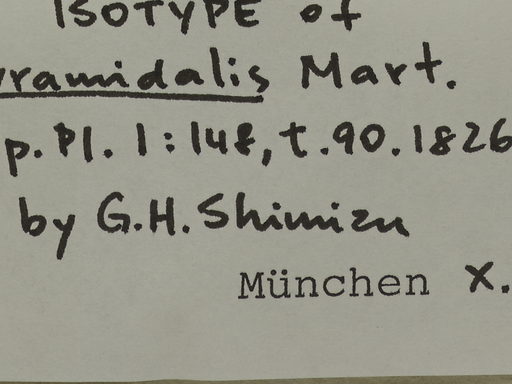 ISOTYPE of
yramidalis Mart.
p. Pl. 1:148, t.90.1826
by G.H. Shimizu
München X.